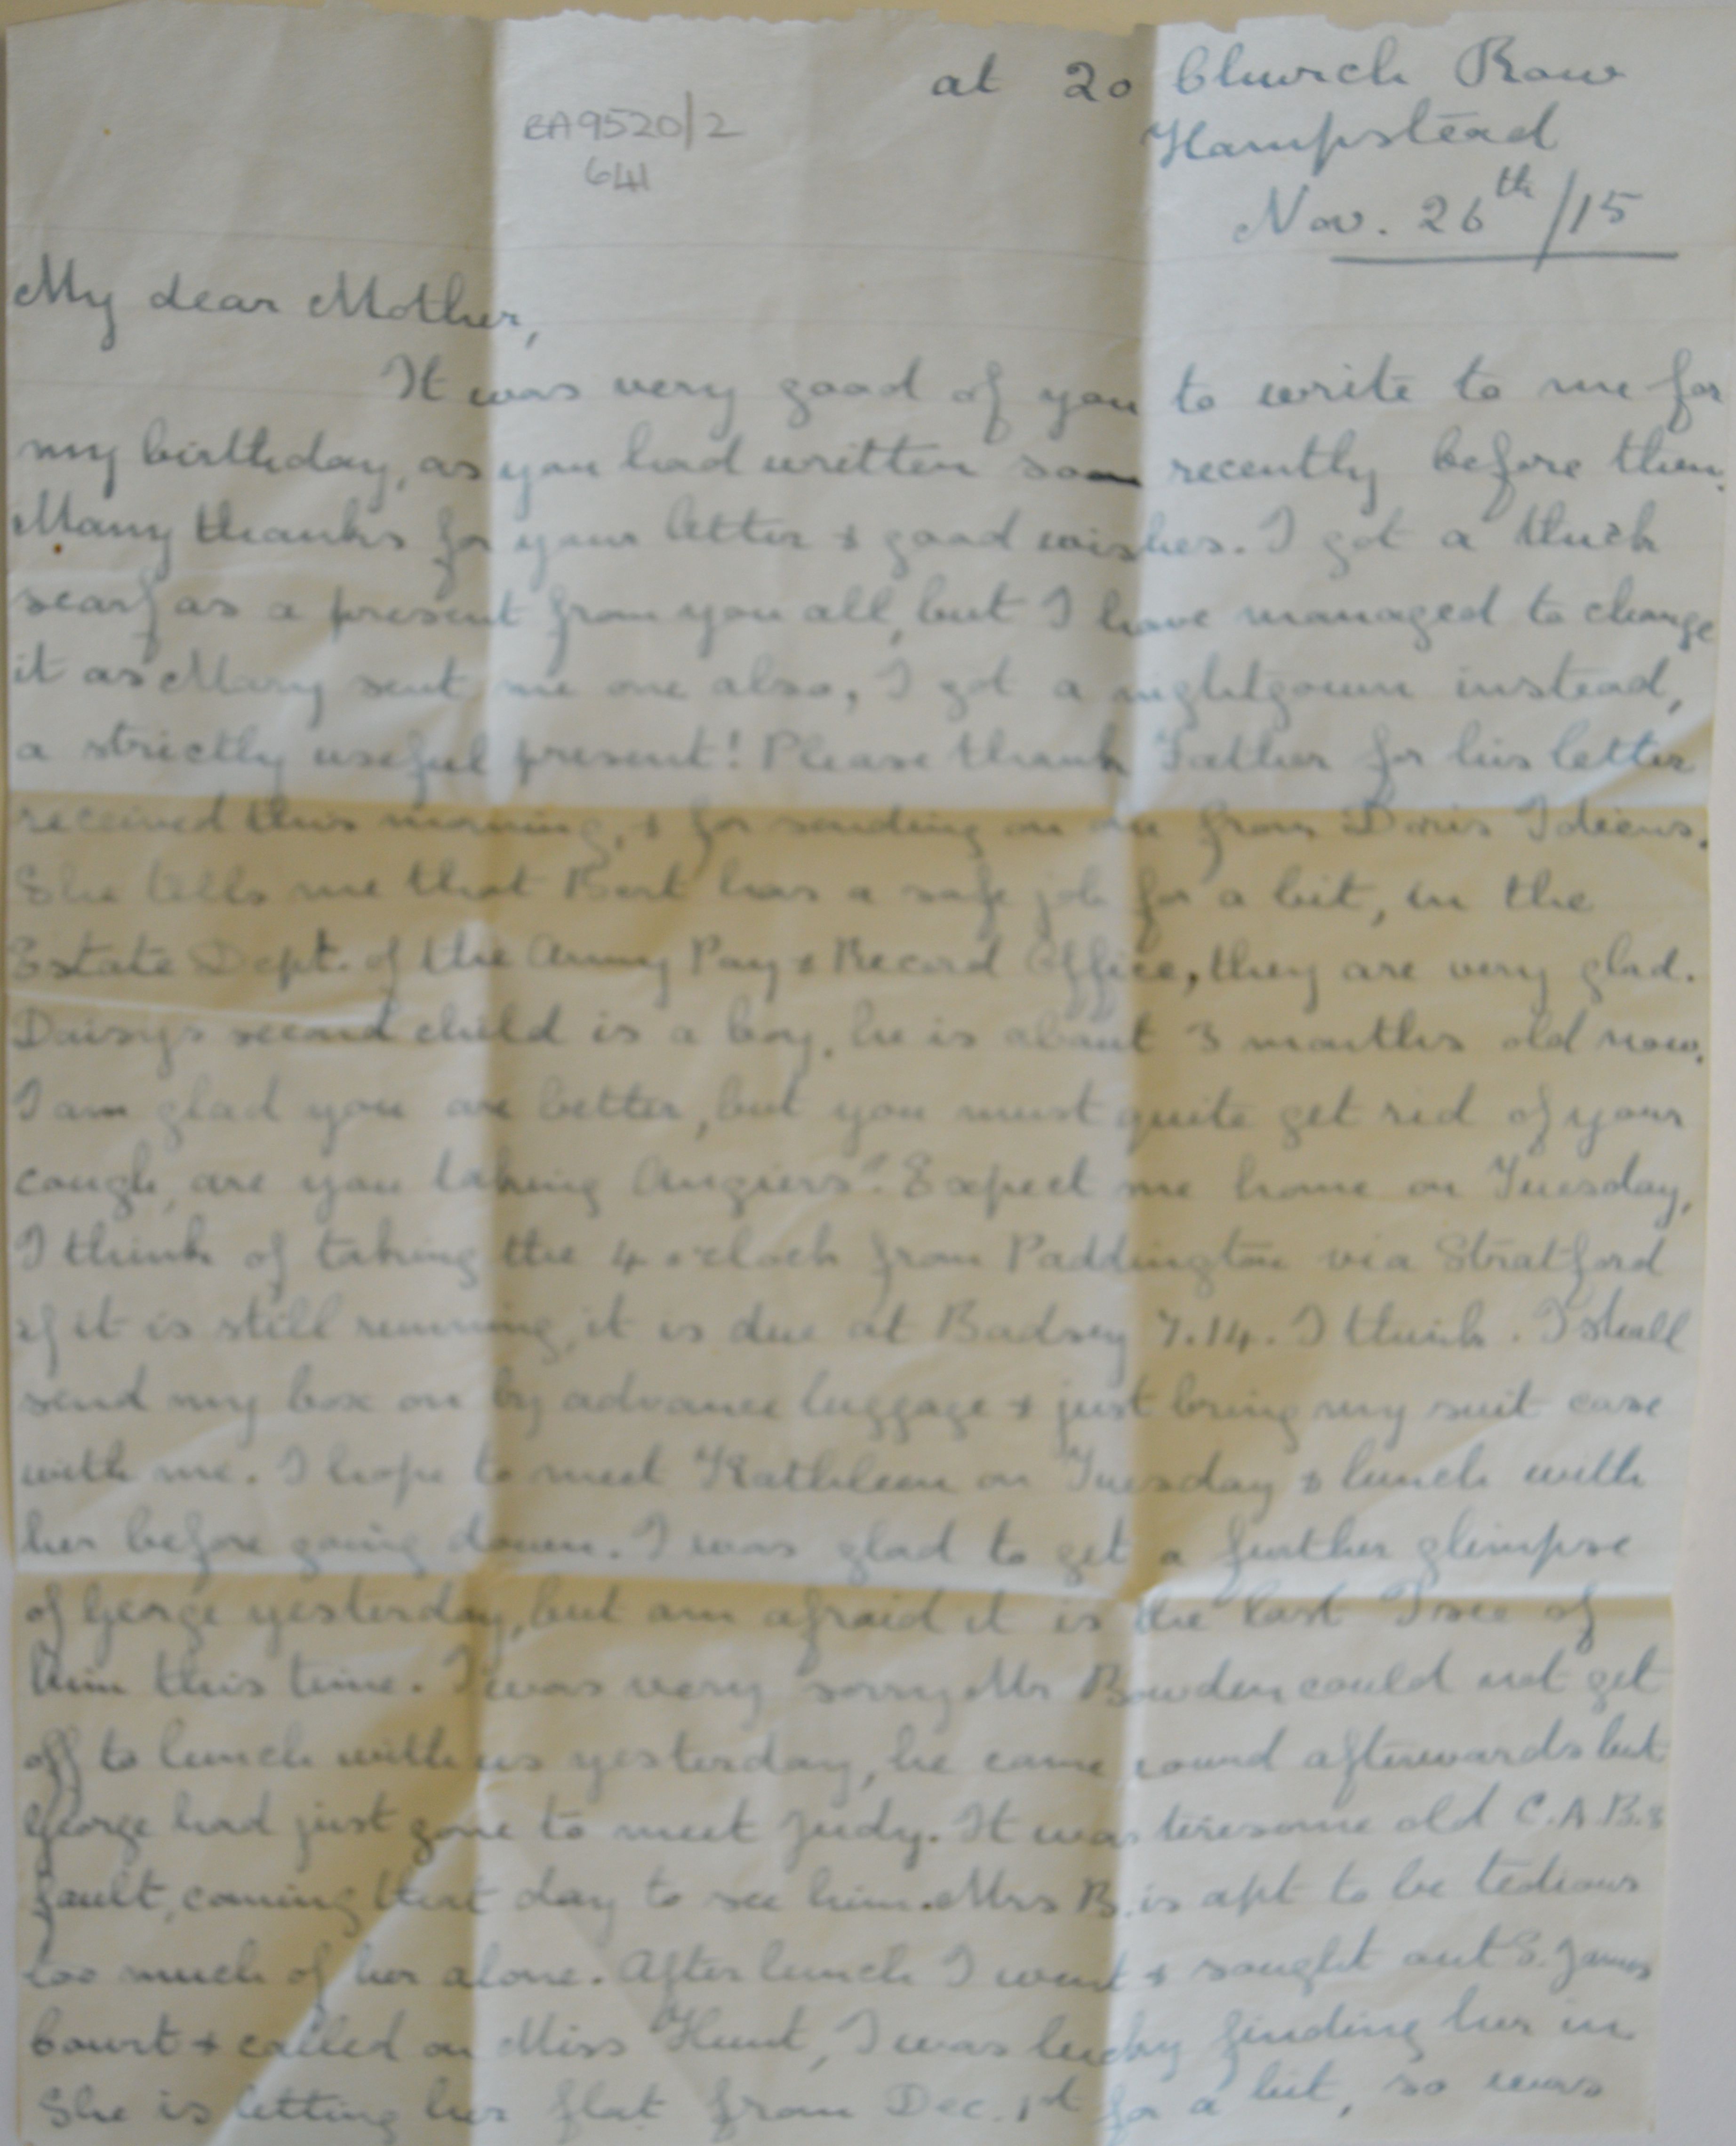 at 20 Church Row
Hampstead
Nov. 26th/15
BA9520/2
641
My dear Mother,
It was very good of you to write to me for
my birthday, as you had written so recently before then.
Many thanks for your letter & good wishes. I got a thick
scarf as a present from you all, but I have managed to change
it as Mary sent me one also, I got a nightgown instead,
a strictly useful present! Please thank Father for his letter
received this morning, & for sending on one from Doris Idiens.
She tells me that Bert has a safe job for a bit, in the
Estate Dept. of the Army Pay & Record Office, they are very glad.
Daisys second child is a boy, he is about 3 months old now.
I am glad you are better, but you must quite get rid of your
cough, are you taking Angiers? Expect me home on Tuesday,
I think of taking the 4 o'clock from Paddington via Stratford
if it is still running, it is due at Badsey 7.14. I think. I shall
send my box on by advance luggage & just bring my suit case
with me. I hope to meet Kathleen on Tuesday & lunch with
her before going down. I was glad to get a further glimpse
of George yesterday, but am afraid it is the last I see of
him this time. I was very sorry Mr Bowden could not get
off to lunch with us yesterday, he came round afterwards but
George had just gone to meet Judy. It was tiresome old C.A.B.s
fault, coming that day to see him. Mrs B. is apt to be tedious
too much of her alone. After lunch I went & sought out S. James
Court & called on Miss Hunt, I was lucky finding her in
She is letting her flat from Dec. 1st for a bit, so was